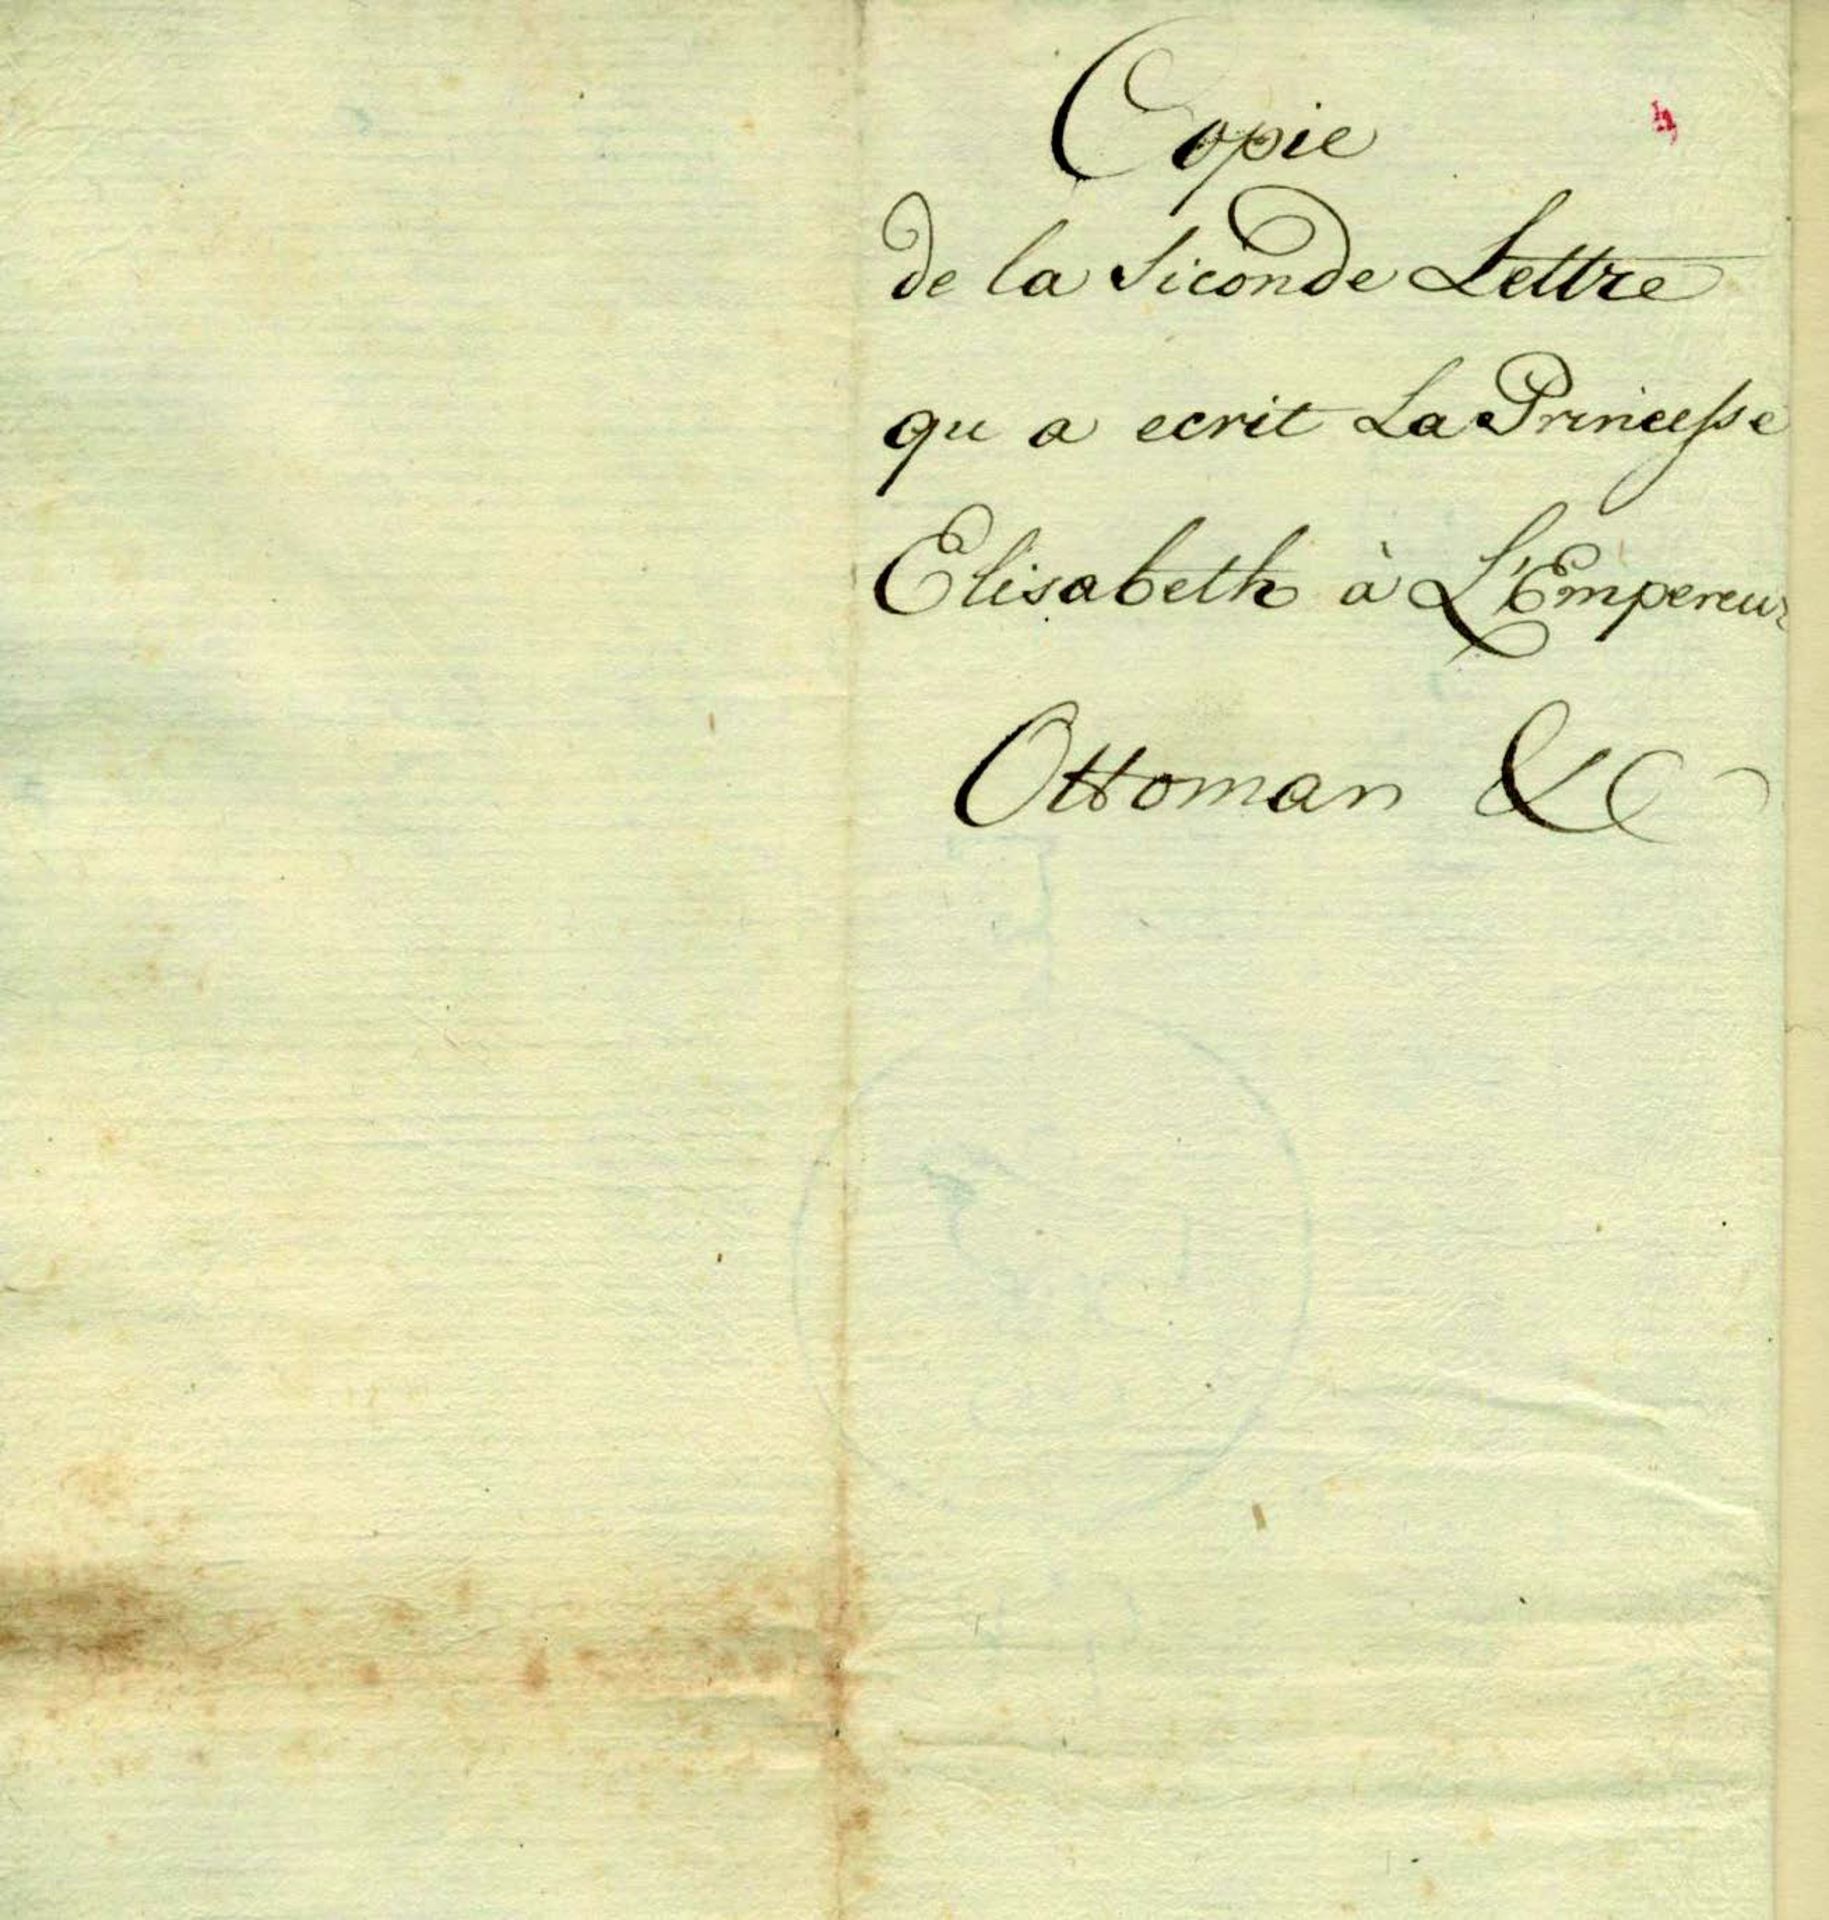 Copie
de la Siconde Lettre
qu a ecrit La Princesse
Elisabeth à L'Empereur
Ottoman &c